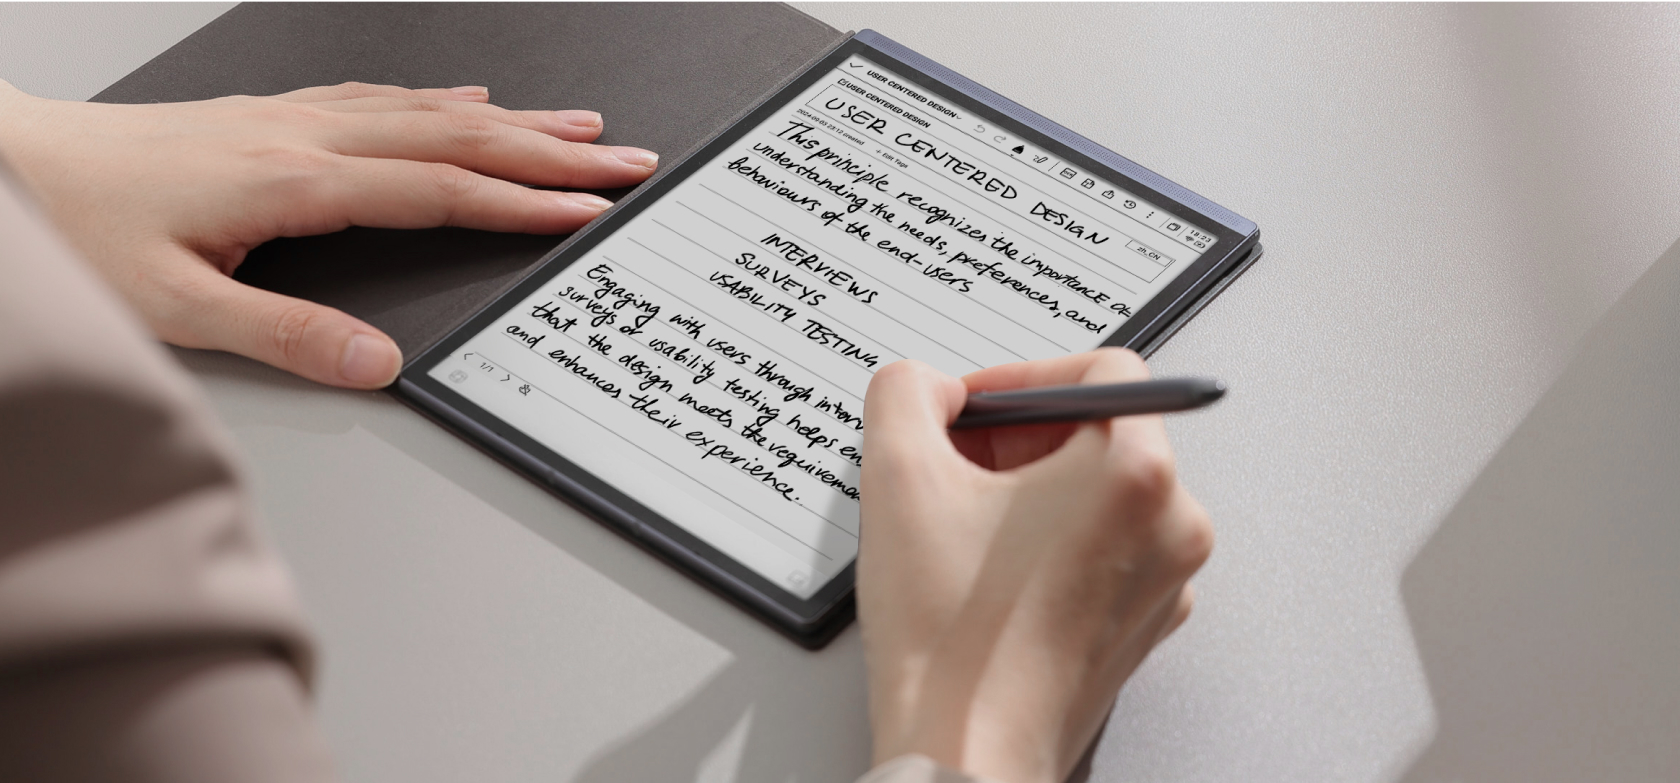 USER CENTERED DESIGN
18:23
USER CENTERED DESIGN
USER CENTERED DESIGN
zh_CN
created
+ Edit Tags
This principle recognizes the importance of
understanding the needs, preferences, and
behaviours of the end-users
INTERVIEWS
SURVEYS
USABILITY TESTING
Engaging with users through interv
surveys or usability testing helps en
that the design meets the requiremen
and enhances their experience.
1/1